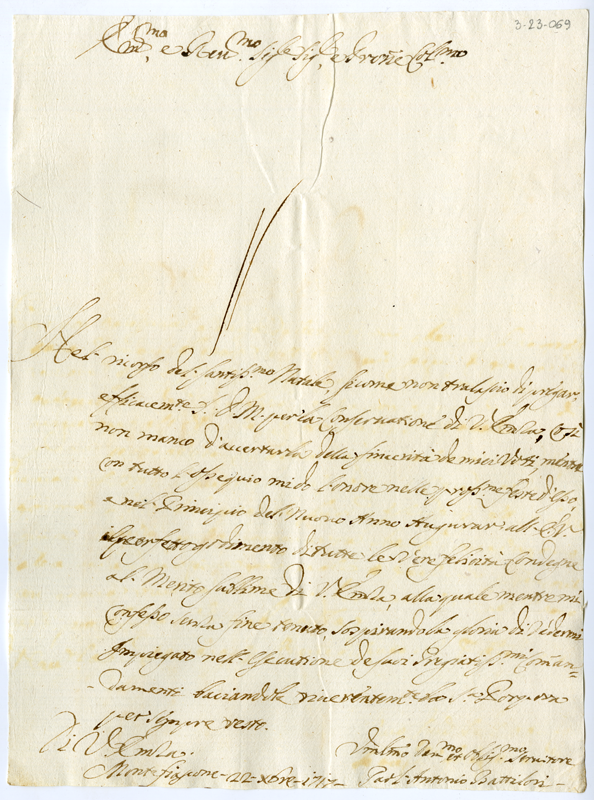 3-23-069
Em.mo e Rev.mo Sig.re Sig.re e Prone Col.mo
Nel ricorso del Santiss.mo Natale, siccome non tralascio di pregar
efficacem.te S. D. M. per la Conservatione di V. Emza, così
non manco d'accertarla della sincerità de miei Voti mentre
con tutto l'ossequio mi do l'onore nelle pross.me feste di esso
e nel Principio del Nuovo Anno Augurar all' E. V.
il perfetto godimento di tutte le vere felicità Condegne
al Merito sublime di V. Emza, alla quale mentre mi
Confesso senza fine tenuto, sospirando la gloria di vedermi
Impiegato nell' Esecutione de suoi Pregiatiss.mi Coman=
damenti baciandole riverentem.te la S.a Porpora
per sempre resto.
Di V. Emza.
Montefiascone 22 xbre 1717
Umilmo Dev.mo et Obblig.mo Servitore
Antonio Battilori